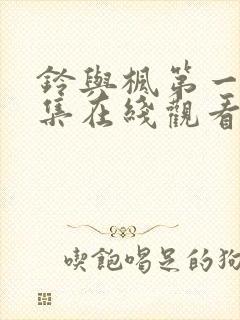 鈴與楓第一
集在綫觀看
喫飽喝足的狗